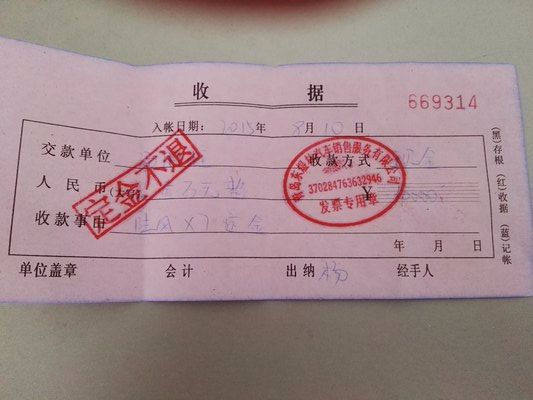 收 据
669314
入帐日期: 2015年 8月10日
交款单位 收款方式 现金
人民币(大写) 万元整 ¥
收款事由 景风 X7 定金
年 月 日
单位盖章 会计 出纳 杨 经手人
(黑)存根 (红)收据 (蓝)记帐
定金不退
汽车销售服务有限公司
370284763632946
发票专用章